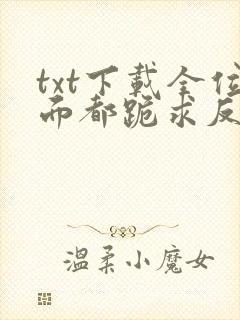 txt下載全位
而都跪求反
温柔小魔女